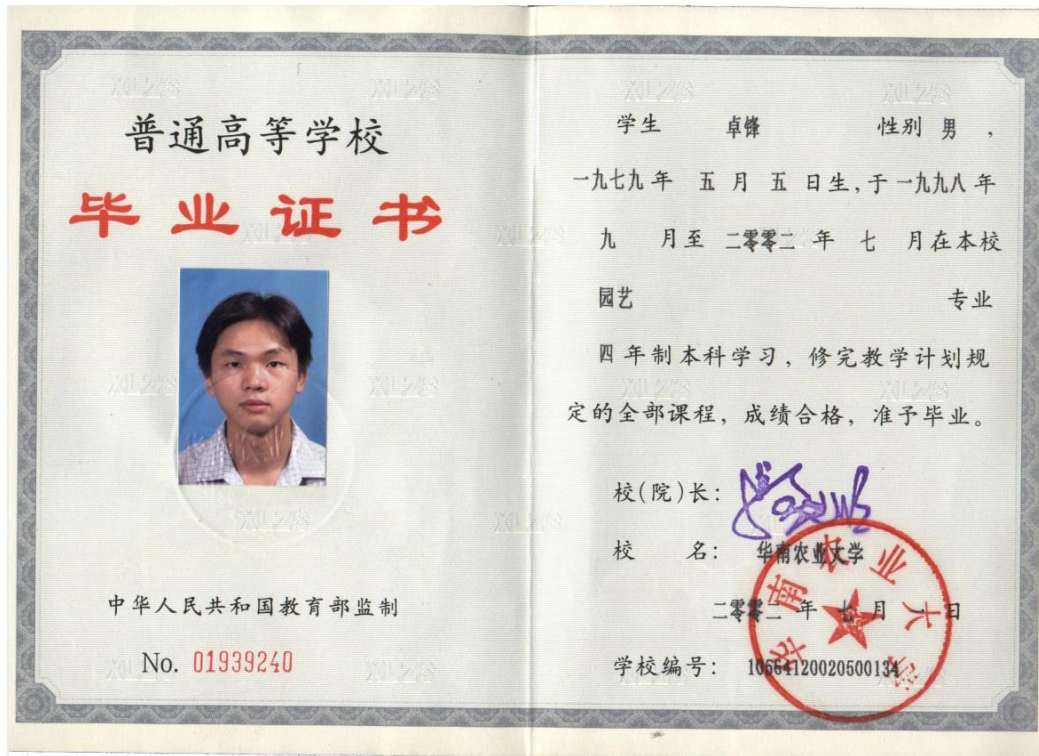 普通高等学校
毕业证书
中华人民共和国教育部监制
No. 01939240
学生 卓锋 性别 男 ，
一九七九 年 五 月 五 日生，于 一九九八 年
九 月至 二零零二 年 七 月在本校
园艺 专业
四 年制本科学习，修完教学计划规
定的全部课程，成绩合格，准予毕业。
校(院)长：
校 名： 华南农业大学
二零零二 年 七 月 一 日
学校编号： 10564120020500134
华南农业大学